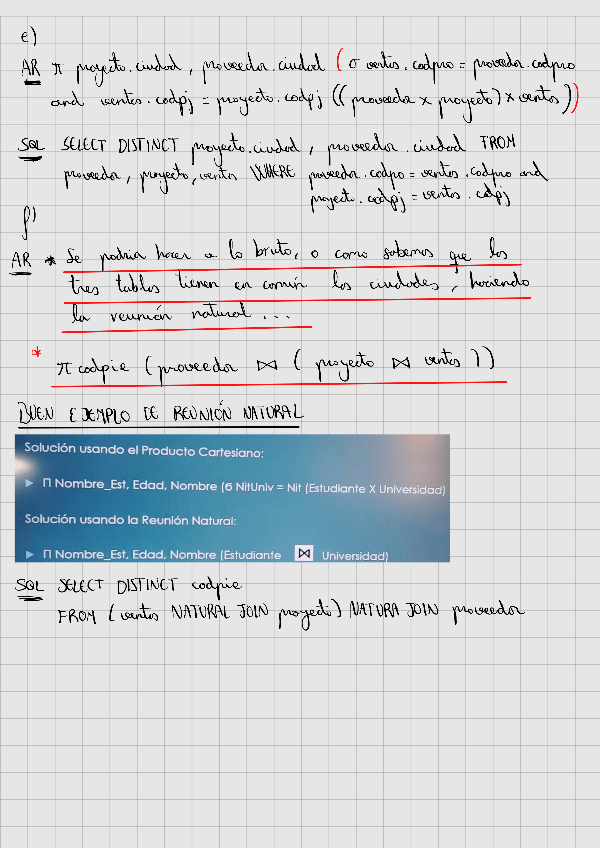 e)
AR π proyecto.ciudad, proveedor.ciudad (σ ventas.codpro = proveedor.codpro
and ventas.codpj = proyecto.codpj ((proveedor x proyecto) x ventas))
SQL SELECT DISTINCT proyecto.ciudad, proveedor.ciudad FROM
proveedor, proyecto, ventas WHERE proveedor.codpro = ventas.codpro and
proyecto.codpj = ventas.codpj
f)
AR * Se podria hacer a lo bruto, o como sabemos que las
tres tablas tienen en común las ciudades, haciendo
la reunión natural ...
* π codpie (proveedor ⋈ ( proyecto ⋈ ventas ))
BUEN EJEMPLO DE REUNIÓN NATURAL
Solución usando el Producto Cartesiano:
▶ Π Nombre_Est, Edad, Nombre (б NitUniv = Nit (Estudiante X Universidad)
Solución usando la Reunión Natural:
▶ Π Nombre_Est, Edad, Nombre (Estudiante ⋈ Universidad)
SQL SELECT DISTINCT codpie
FROM (ventas NATURAL JOIN proyecto) NATURA JOIN proveedor